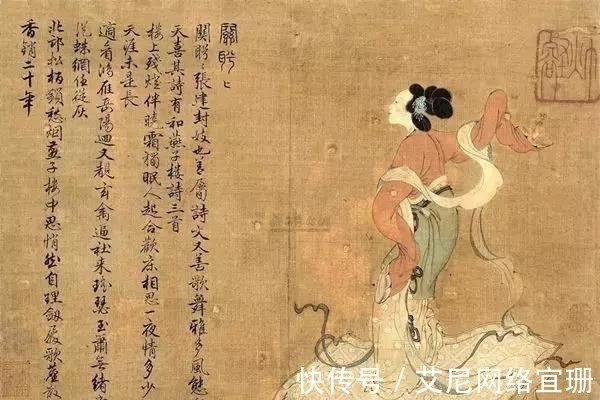 關盼〻
關盼〻張建封妓也善屬詩文又善歌舞雅多風態
天喜其詩有和燕子樓詩三首
樓上殘燈伴曉霜獨眠人起合歡床相思一夜情多少
天涯未是長
適看鴻雁岳陽迴又覩玄禽逼社來瑤瑟玉簫無緒
從蛛網任從灰
北邙松柏鎖愁烟燕子樓中思悄然自理劔履歌塵散
香銷二十年
快传号 / 艾尼网络宜珊